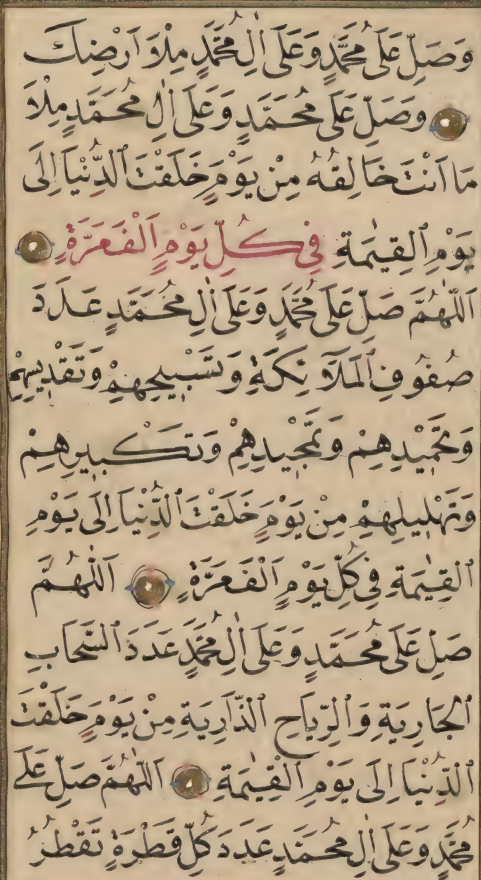 وَصَلِّ عَلَى مُحَمَّدٍ وَعَلَى اٰلِ مُحَمَّدٍ مِلْاَ اَرْضِكَ
وَصَلِّ عَلَى مُحَمَّدٍ وَعَلَى اٰلِ مُحَمَّدٍ مِلْاَ
مَا اَنْتَ خَالِقُهُ مِنْ يَوْمِ خَلَقْتَ الدُّنْيَا اِلَى
يَوْمِ الْقِيٰمَةِ فِي كُلِّ يَوْمٍ اَلْفَ مَرَّةٍ
اَللّٰهُمَّ صَلِّ عَلَى مُحَمَّدٍ وَعَلَى اٰلِ مُحَمَّدٍ عَدَدَ
صُفُوفِ الْمَلَآئِكَةِ وَتَسْبِيحِهِمْ وَتَقْدِيسِهِمْ
وَتَحْمِيدِهِمْ وَتَمْجِيدِهِمْ وَتَكْبِيرِهِمْ
وَتَهْلِيلِهِمْ مِنْ يَوْمِ خَلَقْتَ الدُّنْيَا اِلَى يَوْمِ
الْقِيٰمَةِ فِي كُلِّ يَوْمٍ اَلْفَ مَرَّةٍ اَللّٰهُمَّ
صَلِّ عَلَى مُحَمَّدٍ وَعَلَى اٰلِ مُحَمَّدٍ عَدَدَ السَّحَابِ
الْجَارِيَةِ وَالرِّيَاحِ الذَّارِيَةِ مِنْ يَوْمِ خَلَقْتَ
الدُّنْيَا اِلَى يَوْمِ الْقِيٰمَةِ اَللّٰهُمَّ صَلِّ عَلَى
مُحَمَّدٍ وَعَلَى اٰلِ مُحَمَّدٍ عَدَدَ كُلِّ قَطْرَةٍ تَقْطُرُ